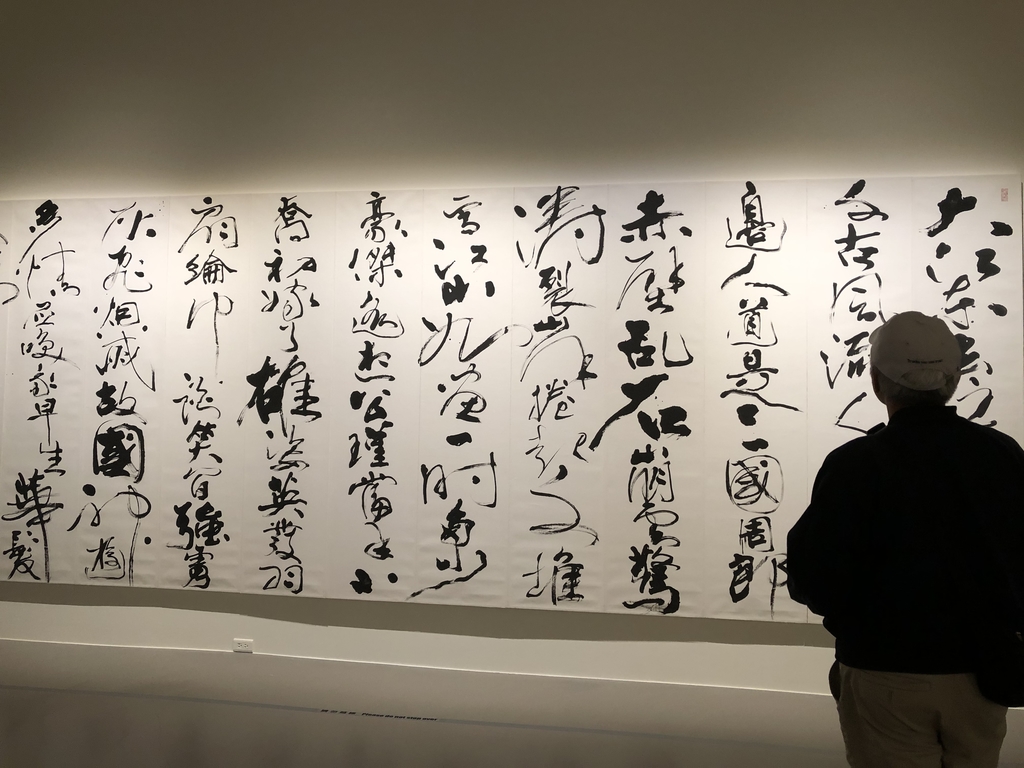 大江东去
千古風流人
邊人道是三國周郎
赤壁乱石崩雲驚
濤裂岸捲起千堆
雪江山如畫一時多少
豪傑遙想公瑾當年小
喬初嫁了雄姿英發羽
扇綸巾談笑間強虜
灰飛烟滅故國神遊
多情應笑我早生華髮